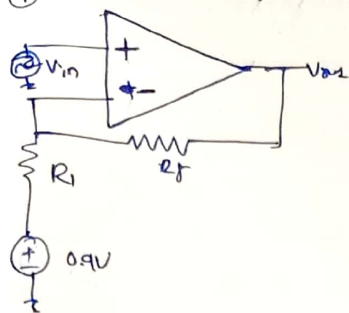 +
Vin
-
Vout
Rf
R1
+
-
0.9V